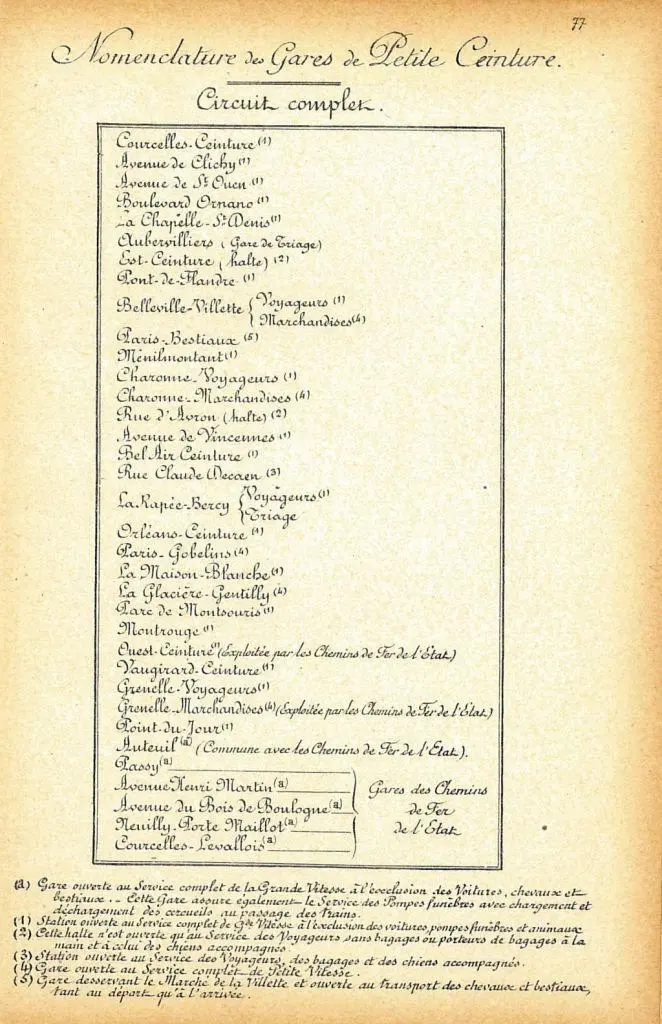 77
Nomenclature des Gares de Petite Ceinture.
Circuit complet.
Courcelles-Ceinture (1)
Avenue de Clichy (1)
Avenue de St Ouen (1)
Boulevard Ornano (1)
La Chapelle-St Denis (1)
Aubervilliers (Gare de Triage)
Est-Ceinture (halte) (2)
Pont-de-Flandre (1)
Belleville-Villette { Voyageurs (1)
Marchandises (4)
Paris-Bestiaux (5)
Ménilmontant (1)
Charonne-Voyageurs (1)
Charonne-Marchandises (4)
Rue d'Avron (halte) (2)
Avenue de Vincennes (1)
Bel Air Ceinture (1)
Rue Claude Decaen (3)
La Rapée-Bercy { Voyageurs (1)
Triage
Orléans-Ceinture (1)
Paris-Gobelins (4)
La Maison-Blanche (1)
La Glacière-Gentilly (4)
Parc de Montsouris (1)
Montrouge (1)
Ouest-Ceinture (1) (Exploitée par les Chemins de Fer de l'Etat)
Vaugirard-Ceinture (1)
Grenelle-Voyageurs (1)
Grenelle-Marchandises (4) (Exploitée par les Chemins de Fer de l'Etat)
Point-du-Jour (1)
Auteuil (a) (Commune avec les Chemins de Fer de l'Etat).
Passy (a)
Avenue Henri Martin (a) Gares des Chemins
Avenue du Bois de Boulogne (a) de Fer
Neuilly-Porte Maillot (a) de l'Etat
Courcelles-Levallois (a)
(a) Gare ouverte au Service complet de la Grande Vitesse à l'exclusion des Voitures, chevaux et
bestiaux. - Cette Gare assure également le Service des Pompes funèbres avec chargement et
déchargement des cercueils au passage des Trains.
(1) Station ouverte au Service complet de Gde Vitesse à l'exclusion des voitures, pompes funèbres et animaux
(2) Cette halte n'est ouverte qu'au Service des Voyageurs sans bagages ou porteurs de bagages à la
main et à celui des chiens accompagnés.
(3) Station ouverte au Service des Voyageurs, des bagages et des chiens accompagnés.
(4) Gare ouverte au Service complet de Petite Vitesse.
(5) Gare desservant le Marché de la Villette et ouverte au transport des chevaux et bestiaux,
tant au départ qu'à l'arrivée.